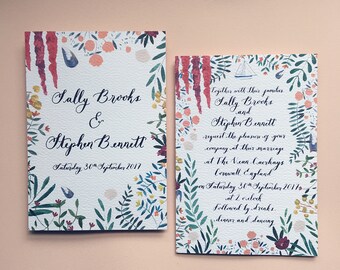 Sally Brooks
&
Stephen Bennett
Saturday 30th September 2017
Together with their families
Sally Brooks
and
Stephen Bennett
request the pleasure of your
company at their marriage
at The Vean Caerhays
Cornwall England
on Saturday 30th September 2017
at 2 o'clock
Followed by drinks,
dinner and dancing